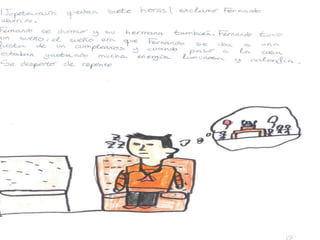 ¡Jopetaaaaa quedan siete horas! exclamó Fernando
aburrido.
Fernando se durmió y su hermana también. Fernando tuvo
un sueño: el sueño era que Fernando se iba a una
fiesta de un cumpleaños y cuando pasó a la casa
estaban gastando mucha energía luminosa y calorífica.
Se despertó de repente
z z
z z
z z
z z